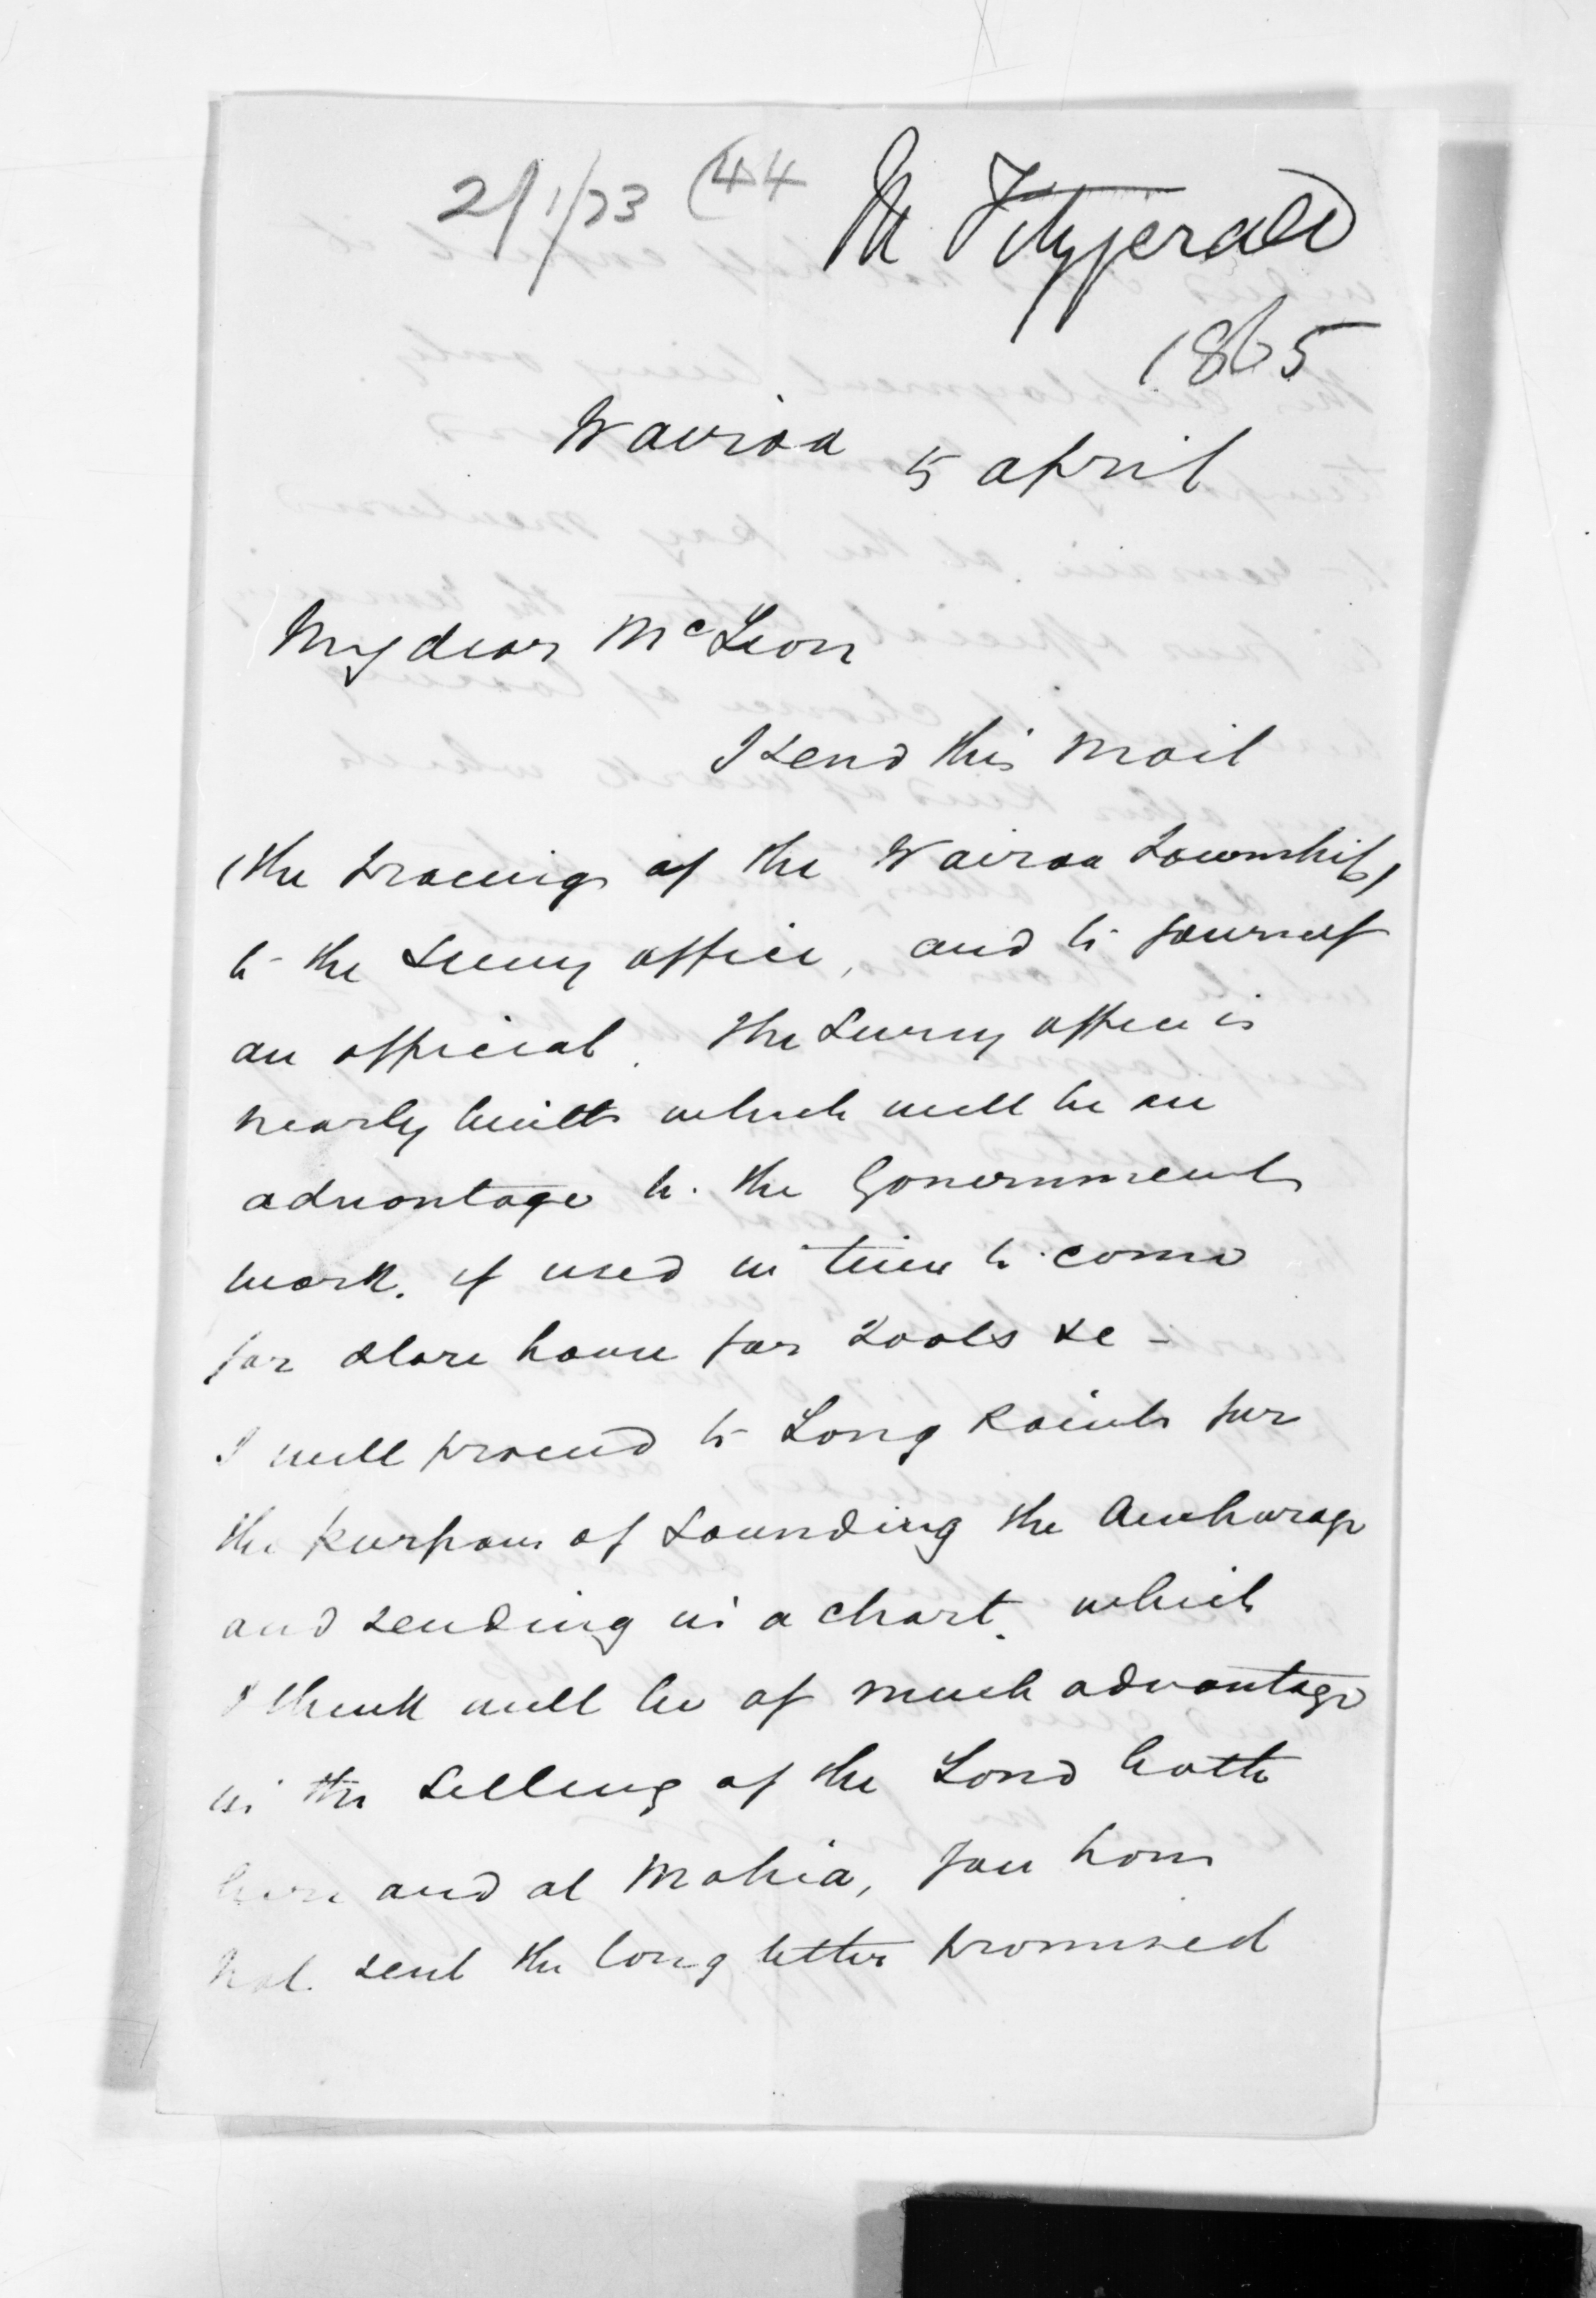 21/1/73 (44
M Fitzgerald
1865
Wairoa 5 april
My dear McLeon
I send this mail
(the tracings of the Wairoa Township)
to the Survey office, and to yourself
an official. The Survey office is
nearly built which will be an
advantage to the Government
work. if used in time to come
for store house for Tools &c -
I will proceed to Long Point for
the purpose of Sounding the Anchorage
and sending in a chart. which
I think will be of much advantage
in the Selling of the Land both
here and at Mahia, you have
not sent the long letter promised